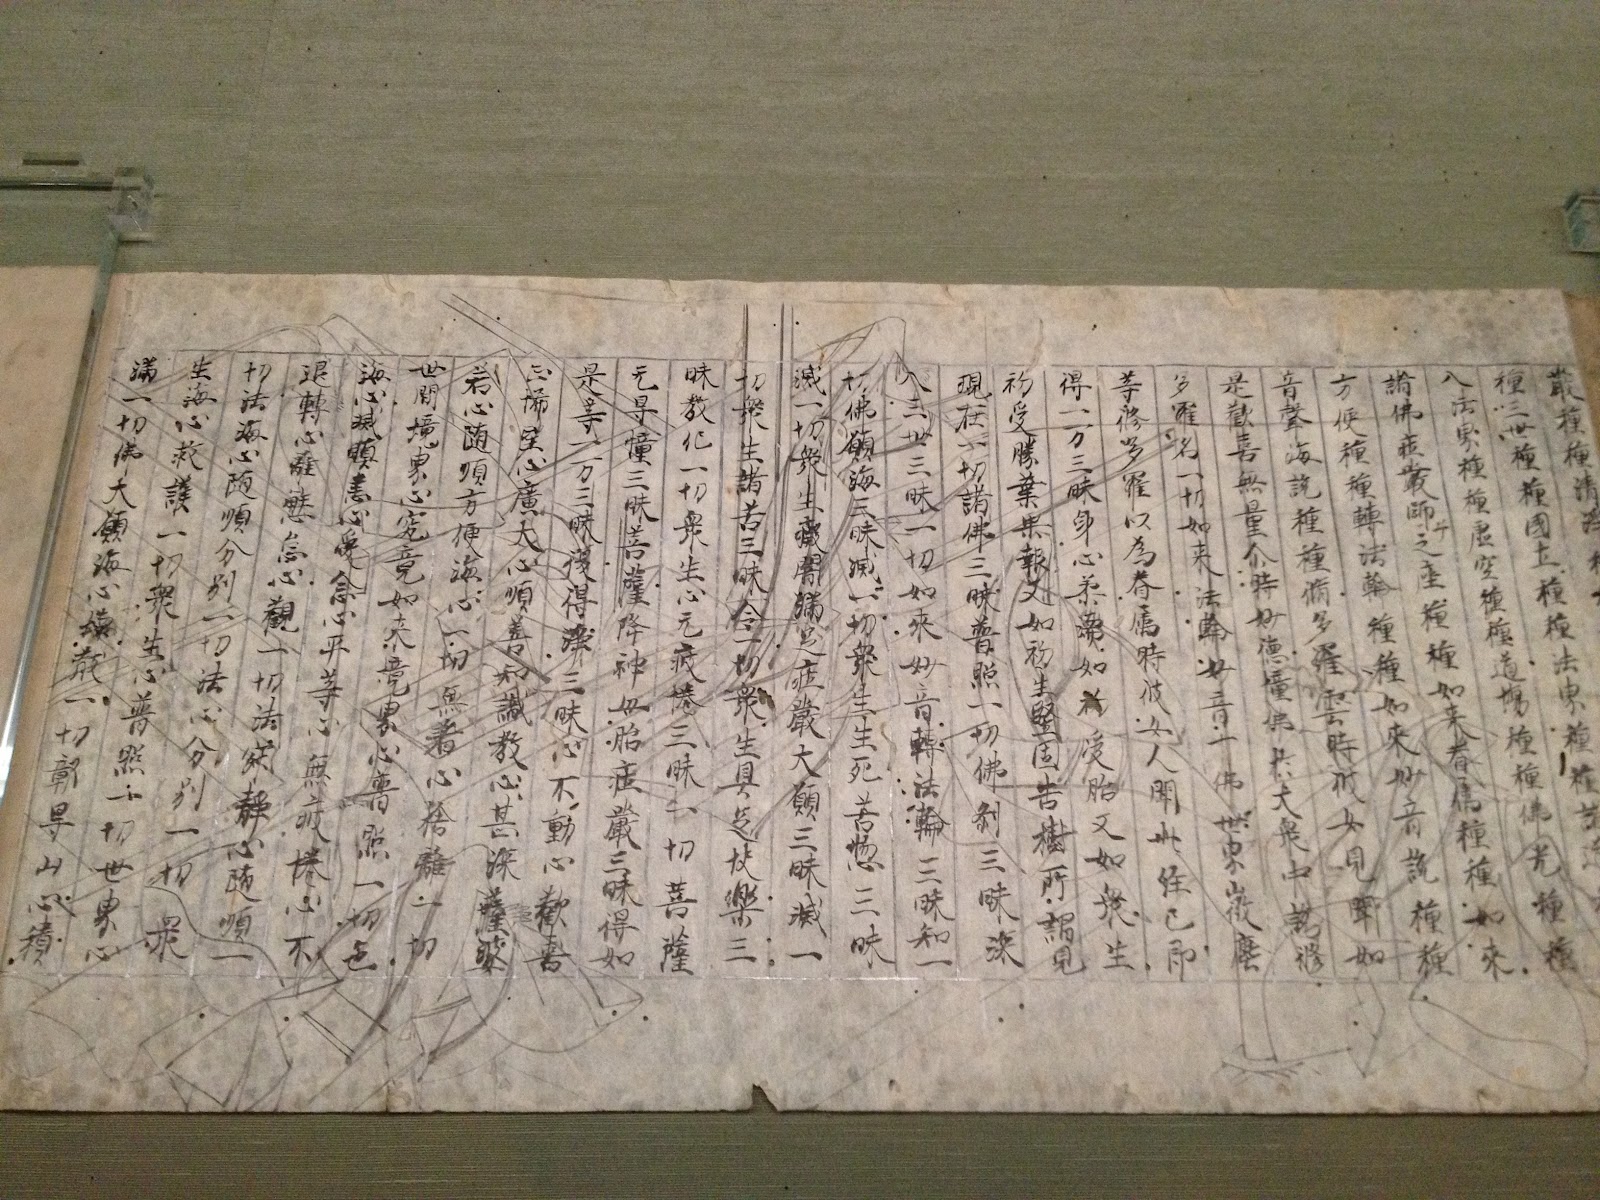 嚴種種清淨種
種三世種種國土種種法界種種
八法界種種虛空種種道場種種佛光種種
諭佛莊嚴師子之座種種如来眷属種種如来
方便種種轉法輪種種如來妙音說種種
音聲海說種種脩多羅雲時彼女見聞如
是歡喜無量尒時妙德憧佛共大衆中說脩
多羅名一切如来法輪妙音一佛世界㣲塵
等脩多羅以為眷属時彼女人聞此経已即
得一万三昧身心柔濡如初受胎又如衆生
初受勝業果報又如初生堅固吉樹所謂見
現在一切諸佛三昧普照一切佛剎三昧深
入三世三昧一切如来妙音轉法輪三昧知一
切佛願海三昧滅一切衆生生死苦惱三昧
滅一切衆生癡闇滿足莊嚴大願三昧滅一
切衆生諸苦三昧令一切衆生具足快樂三
昧教化一切衆生心无疲惓三昧一切菩薩
无㝵憧三昧菩薩降神母胎莊嚴三昧得如
是等一万三昧復得深三昧心不動心歡喜
心稀望心廣大心順善知識教心甚深薩婆
若心随順方便海心一切無著心捨離一切
世間境界心究竟如来境界心普照一切色
海心滅瞋恚心愛念心平等心無疲惓心不
退轉心離懈怠心觀一切法寂靜心随順一
切法海心随順分別一切法心分別一切衆
生海心救護一切衆生心普照一切世界心
滿一切佛大願海心壞散一切鄣㝵山心積